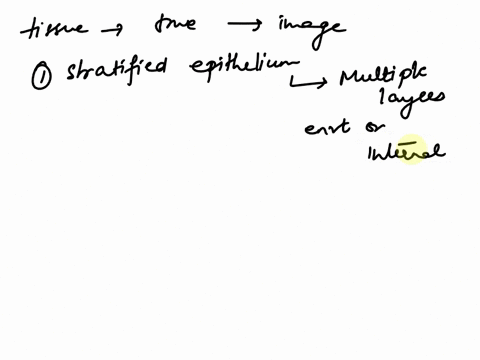 tissue → true → image
① stratified epithelium
↳ Multiple
layers
envt or
internal